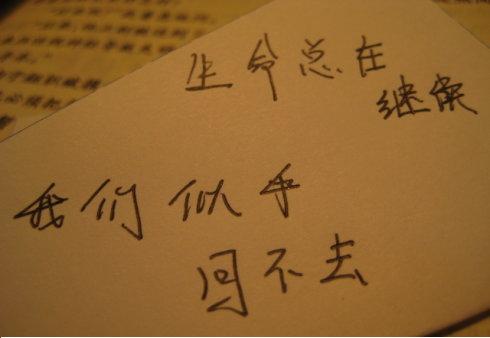 生命总在
继续
我们似乎
回不去